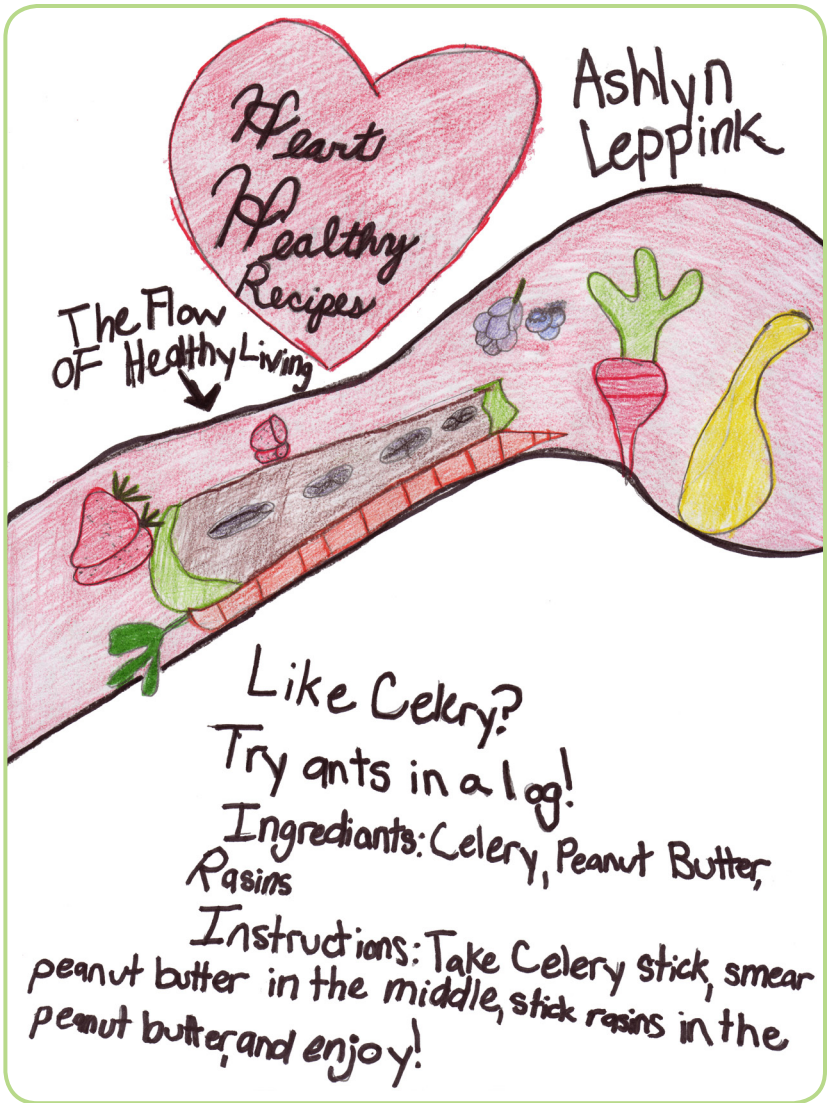 Heart
Healthy
Recipes
Ashlyn
Leppink
The Flow
OF Healthy Living
Like Celery?
Try ants in a log!
Ingrediants: Celery, Peanut Butter,
Rasins
Instructions: Take Celery stick, smear
peanut butter in the middle, stick rasins in the
peanut butter, and enjoy!